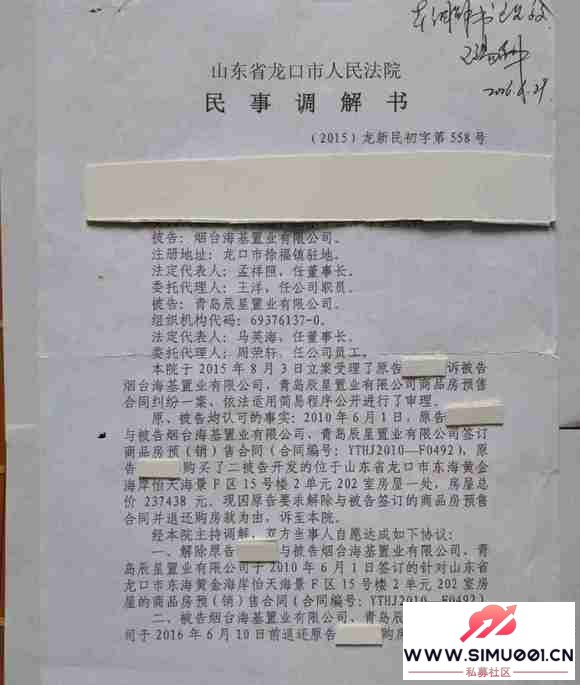 2016.6.29
山东省龙口市人民法院
民事调解书
（2015）龙新民初字第558号
被告：烟台海基置业有限公司。
注册地址：龙口市徐福镇驻地。
法定代表人：孟祥照，任董事长。
委托代理人：王洋，任公司职员。
被告：青岛辰星置业有限公司。
组织机构代码：69376137-0。
法定代表人：马英海，任董事长。
委托代理人：周荣轩，任公司员工。
本院于2015年8月3日立案受理了原告 诉被告
烟台海基置业有限公司、青岛辰星置业有限公司商品房预售
合同纠纷一案、依法适用简易程序公开进行了审理。
原、被告均认可的事实：2010年6月1日，原告
与被告烟台海基置业有限公司、青岛辰星置业有限公司签订
商品房预（销）售合同（合同编号：YTHJ2010—F0492），原
告 购买了二被告开发的位于山东省龙口市东海黄金
海岸怡天海景F区15号楼2单元202室房屋一处，房屋总
价237438元。现因原告要求解除与被告签订的商品房预售
合同并退还购房款为由，诉至本院。
经本院主持调解，双方当事人自愿达成如下协议：
一、解除原告 与被告烟台海基置业有限公司、青
岛辰星置业有限公司于2010年6月1日签订的针对山东省
龙口市东海黄金海岸怡天海景F区15号楼2单元202室房
屋的商品房预（销）售合同（合同编号：YTHJ2010—F0492）
二、被告烟台海基置业有限公司、青岛辰
司于2016年6月10日前退还原告 购房
WWW.SIMU001.CN
私募社区